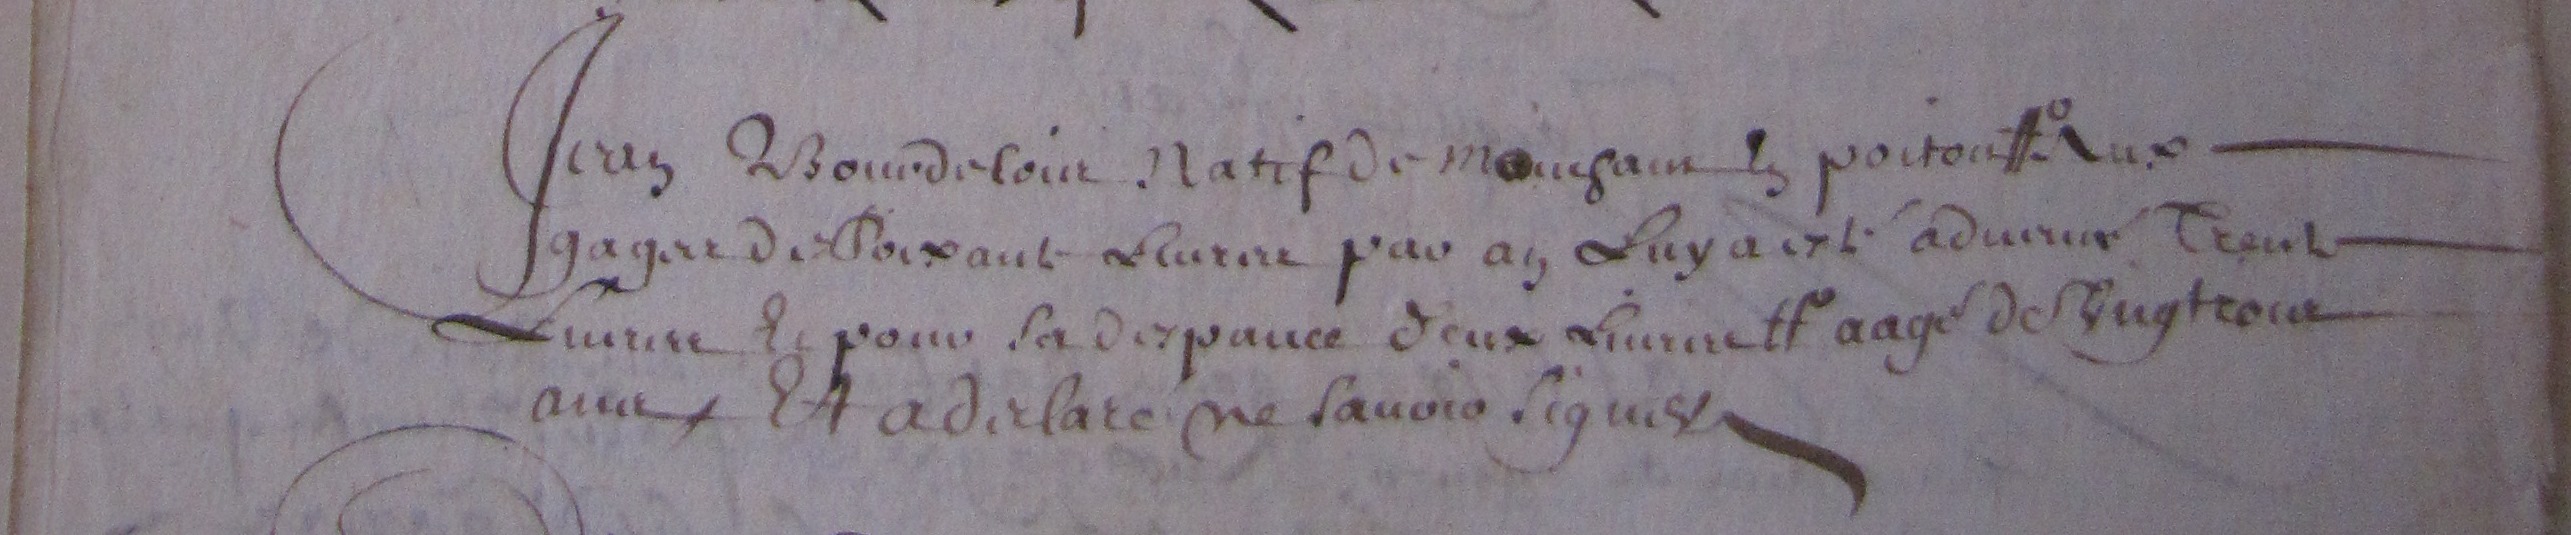 Jean Bourdeloie Natif de en poitou Aux
gages de Soixante Liures par an Luy a esté aduencé Trente
Liures Et pour sa despance deux Liures aagé de Vingtrois
ans Et a declaré ne sauoir signer